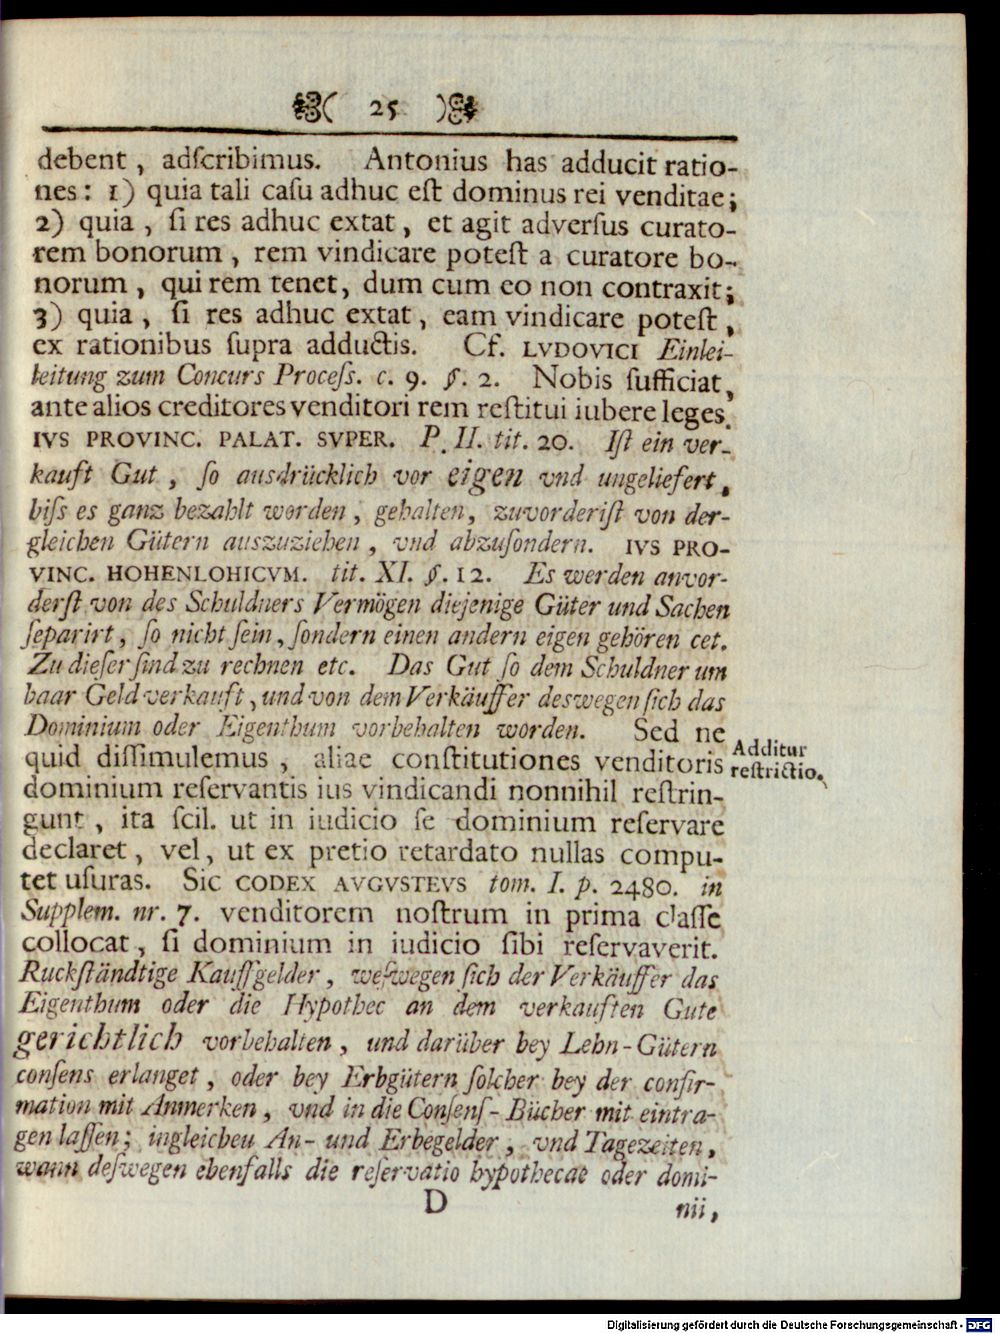 ( 25 )
debent, adſcribimus. Antonius has adducit ratio-
nes: 1) quia tali caſu adhuc eſt dominus rei venditae;
2) quia, ſi res adhuc extat, et agit adverſus curato-
rem bonorum, rem vindicare poteſt a curatore bo-
norum, qui rem tenet, dum cum eo non contraxit;
3) quia, ſi res adhuc extat, eam vindicare poteſt,
ex rationibus ſupra adductis. Cf. LVDOVICI Einlei-
leitung zum Concurs Proceſs. c. 9. §. 2. Nobis ſufficiat,
ante alios creditores venditori rem reſtitui iubere leges.
IVS PROVINC. PALAT. SVPER. P. II. tit. 20. Iſt ein ver-
kauft Gut, ſo ausdrücklich vor eigen vnd ungeliefert,
biſs es ganz bezahlt worden, gehalten, zuvorderiſt von der-
gleichen Gütern auszuziehen, vnd abzuſondern. IVS PRO-
VINC. HOHENLOHICVM. tit. XI. §. 12. Es werden anvor-
derſt von des Schuldners Vermögen diejenige Güter und Sachen
ſeparirt, ſo nicht ſein, ſondern einen andern eigen gehören cet.
Zu dieſer ſind zu rechnen etc. Das Gut ſo dem Schuldner um
baar Geld verkauft, und von dem Verkäuffer deswegen ſich das
Dominium oder Eigenthum vorbehalten worden. Sed ne
quid diſſimulemus, aliae conſtitutiones venditoris
dominium reſervantis ius vindicandi nonnihil reſtrin-
gunt, ita ſcil. ut in iudicio ſe dominium reſervare
declaret, vel, ut ex pretio retardato nullas compu-
tet uſuras. Sic CODEX AVGVSTEVS tom. I. p. 2480. in
Supplem. nr. 7. venditorem noſtrum in prima claſſe
collocat, ſi dominium in iudicio ſibi reſervaverit.
Ruckſtändtige Kauffgelder, weſwegen ſich der Verkäuffer das
Eigenthum oder die Hypothec an dem verkauften Gute
gerichtlich vorbehalten, und darüber bey Lehn-Gütern
conſens erlanget, oder bey Erbgütern ſolcher bey der confir-
mation mit Anmerken, vnd in die Conſenſ-Bücher mit eintra-
gen laſſen; ingleicheu An- und Erbegelder, vnd Tagezeiten,
wann deſwegen ebenfalls die reſervatio hypothecae oder domi-
D
nii,
Additur
reſtrictio.
Digitalisierung gefördert durch die Deutsche Forschungsgemeinschaft - DFG